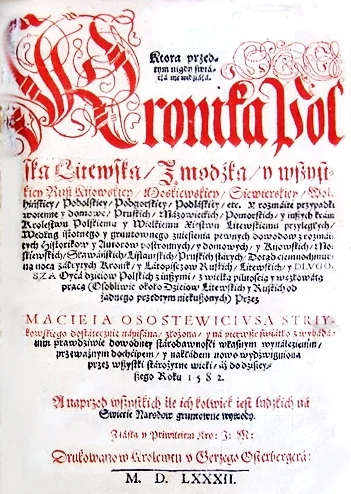 Ktora przed-
tym nigdy świá-
tłá nie widziáłá.
Kronika Pol
ska Litewska/ Żmodźka/ y wszyst-
kiey Rusi Kijowskiey/ Moskiewskiey/ Siewierskiey/ Wol-
hińskiey/ Podolskiey/ Podgorskiey/ Podláskiey/ etc. Y rozmáite przypadki
woienne y domowe/ Pruskich/ Mázowieckich/ Pomorskich/ y inszych kráin
Krolestwu Polskiemu y Wielkiemu Xięstwu Litewskiemu przyległych/
Według istotnego y gruntownego zniesienia pewnych dowodow z rozmái-
tych Historikow y Autorow postronnych/ y domowych/ y Kijowskich/ Mo-
skiewskich/ Sławáńskich/ Liflantskich/ Pruskich stárych/ Dotąd ciemnochmur-
ną nocą zákrytych Kronik/ y Latopiszczow Ruskich/ Litewskich/ y DLVGO-
SZA Oycá dzieiow Polskich z inszymi/ z wielką pilnością y węzłowátą
pracą (Osobliwie około Dzieiow Litewskich y Ruskich od
żadnego przedtym niekuszonych) Przez
MACIEIA OSOSTEWICIVSA STRIY-
kowskiego dostátecznie nápisána/ złożona/ y ná pierwsze świátło z wybádá-
nim prawdziwie dowodney stárodawności własnym wynálezienim/
przeważnym dochćipem/ y nakłádem nowo wydźwigniona
przez wszystki stárożytne wieki/ áż do dzisiey-
szego Roku 1582.
A naprzod wszystkich ile ich kolwiek iest ludzkich ná
Swiecie Narodow gruntowne wywody.
Z łáską y Priwileiem Kro: J: M:
Drukowano w Krolewcu v Gerzego Osterbergerá:
M. D. LXXXII.